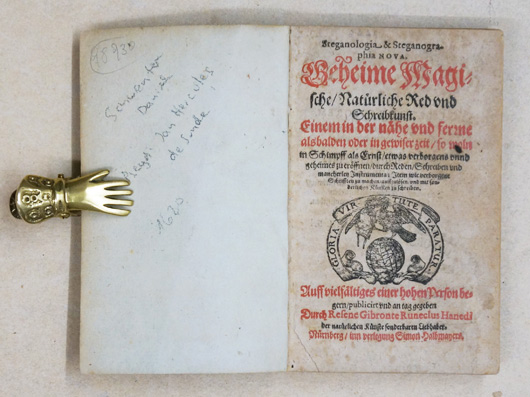 1893
Schwenter
Daniel
Pseud: Jan Hercules
de Sunde
1620
Steganologia & Steganogra-
phia NOVA.
Geheime Magi-
sche/Natürliche Red vnd
Schreibkunst.
Einem in der nähe vnd ferrne
alsbalden oder in gewiser zeit/so wohn
in Schimpff als Ernst/etwas verborgens vnnd
geheimes zu eröffnen/durch Reden/Schreiben vnd
mancherley Instrumenta: Item wie verborgene
Schrifften zu machen/auffzulösen/vnd mit
zu schreiben.
GLORIA VIRTUTE PARATUR
Auff vielfältiges einer hohen Person be-
gern/publicirt vnd an tag gegeben
Durch Resene Gibronte Runeclus Hanedi
der natürlichen Künste sonderbaren Liebhaber.
Nürnberg/inn verlegung Simon Halbmayers.